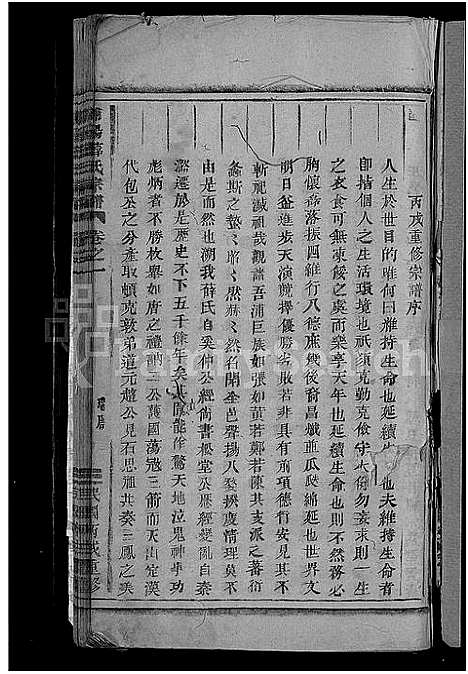 丙戌重修宗譜序
人生於世目的唯何曰維持生命也延續生命也夫維持生命者
即指個人之生活環境也祇須克勤克儉守夫份勿妄求則一生
之衣食可無凍餒之虞而樂享天年也延續生命也則不然務必
胸懷磊落振四維行八德庶幾後裔昌熾瓜瓞綿延也世界文
明日益進步天演競擇優勝劣敗若非有前項德行安見其不
斬祀滅祖哉觀諸吾浦巨族如張如黃若鄭若陳其支派之蕃衍
螽斯之蟄蟄然麻麻然名聞全邑聲揚八婺揆度情理莫不
由於斯也溯我薛氏自奚仲公經尚書松堂公歷經變亂自泰
遷於是歷史不下五千餘年矣其能作驚天地泣鬼神事功
彪炳者不勝枚舉如唐之禮訥二公護國蕩寇三箭而天山定漢
代包丕之分產取頓克敦弟道元超公見石思施共奏三鳳之美
薛氏宗譜 卷之一
民國丙戌重修